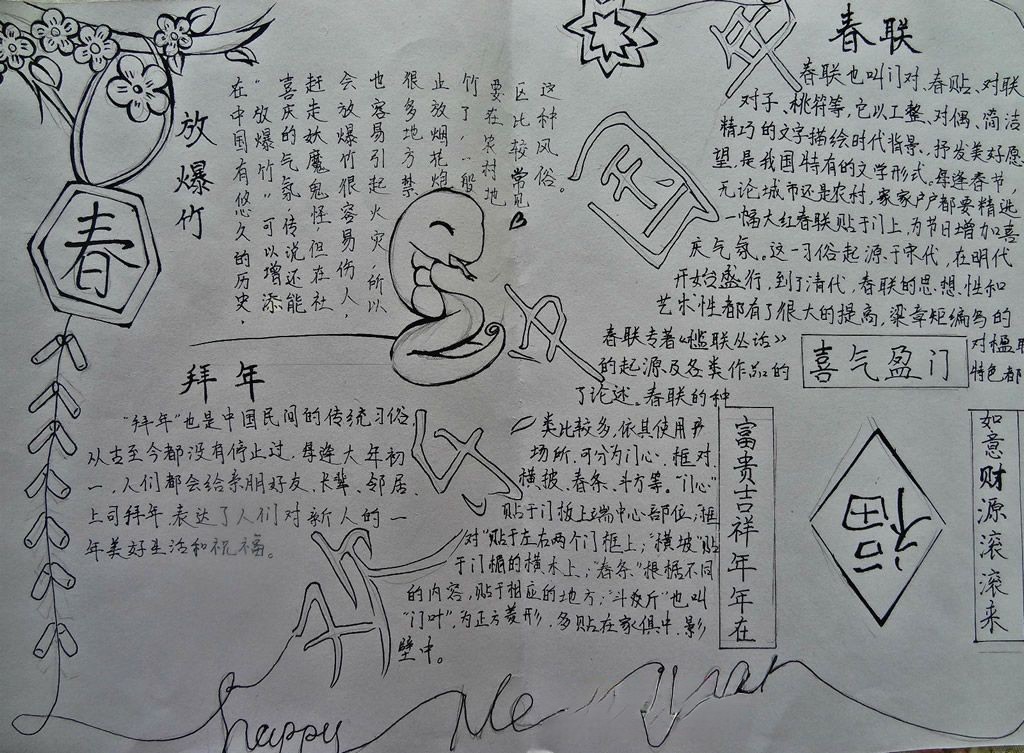 春
放爆竹
在中国有悠久的历史，
“放爆竹”可以增添
喜庆的气氛 传说还能
赶走妖魔鬼怪 但在社
会放爆竹很容易伤人，
也容易引起火灾，所以
很多地方禁
止放烟花炮
竹了，一般
要在农村地
区比较常见
这种风俗。
拜年
“拜年”也是中国民间的传统习俗，
从古至今都没有停止过，每逢大年初
一，人们都会给亲朋好友、长辈、邻居、
上司拜年，表达了人们对新人的一
年美好生活和祝福。
春联
春联也叫门对、春贴、对联
对子、桃符等，它以工整、对偶、简洁
精巧的文字描绘时代背景、抒发美好愿
望，是我国特有的文学形式。每逢春节，
无论城市还是农村，家家户户都要精选
一幅大红春联贴于门上，为节日增加喜
庆气氛。这一习俗起源于宋代，在明代
开始盛行，到了清代，春联的思想性和
艺术性都有了很大的提高，梁章矩编写的
春联专著《槛联丛话》对楹联
的起源及各类作品的特色都
了论述。春联的种
类比较多，依其使用
场所，可分为门心、框对、
横披、春条、斗方等。“门心”
贴于门板上端中心部位，框
对“贴于左右两个门框上，“横坡”贴
于门楣的横木上；“春条”根据不同
的内容，贴于相应的地方；“斗斤”也叫
“门叶”，为正方菱形，多贴在家俱中、影
壁中。
喜气盈门
富贵吉祥年年在
福
如意财源滚滚来
happy Ne Year